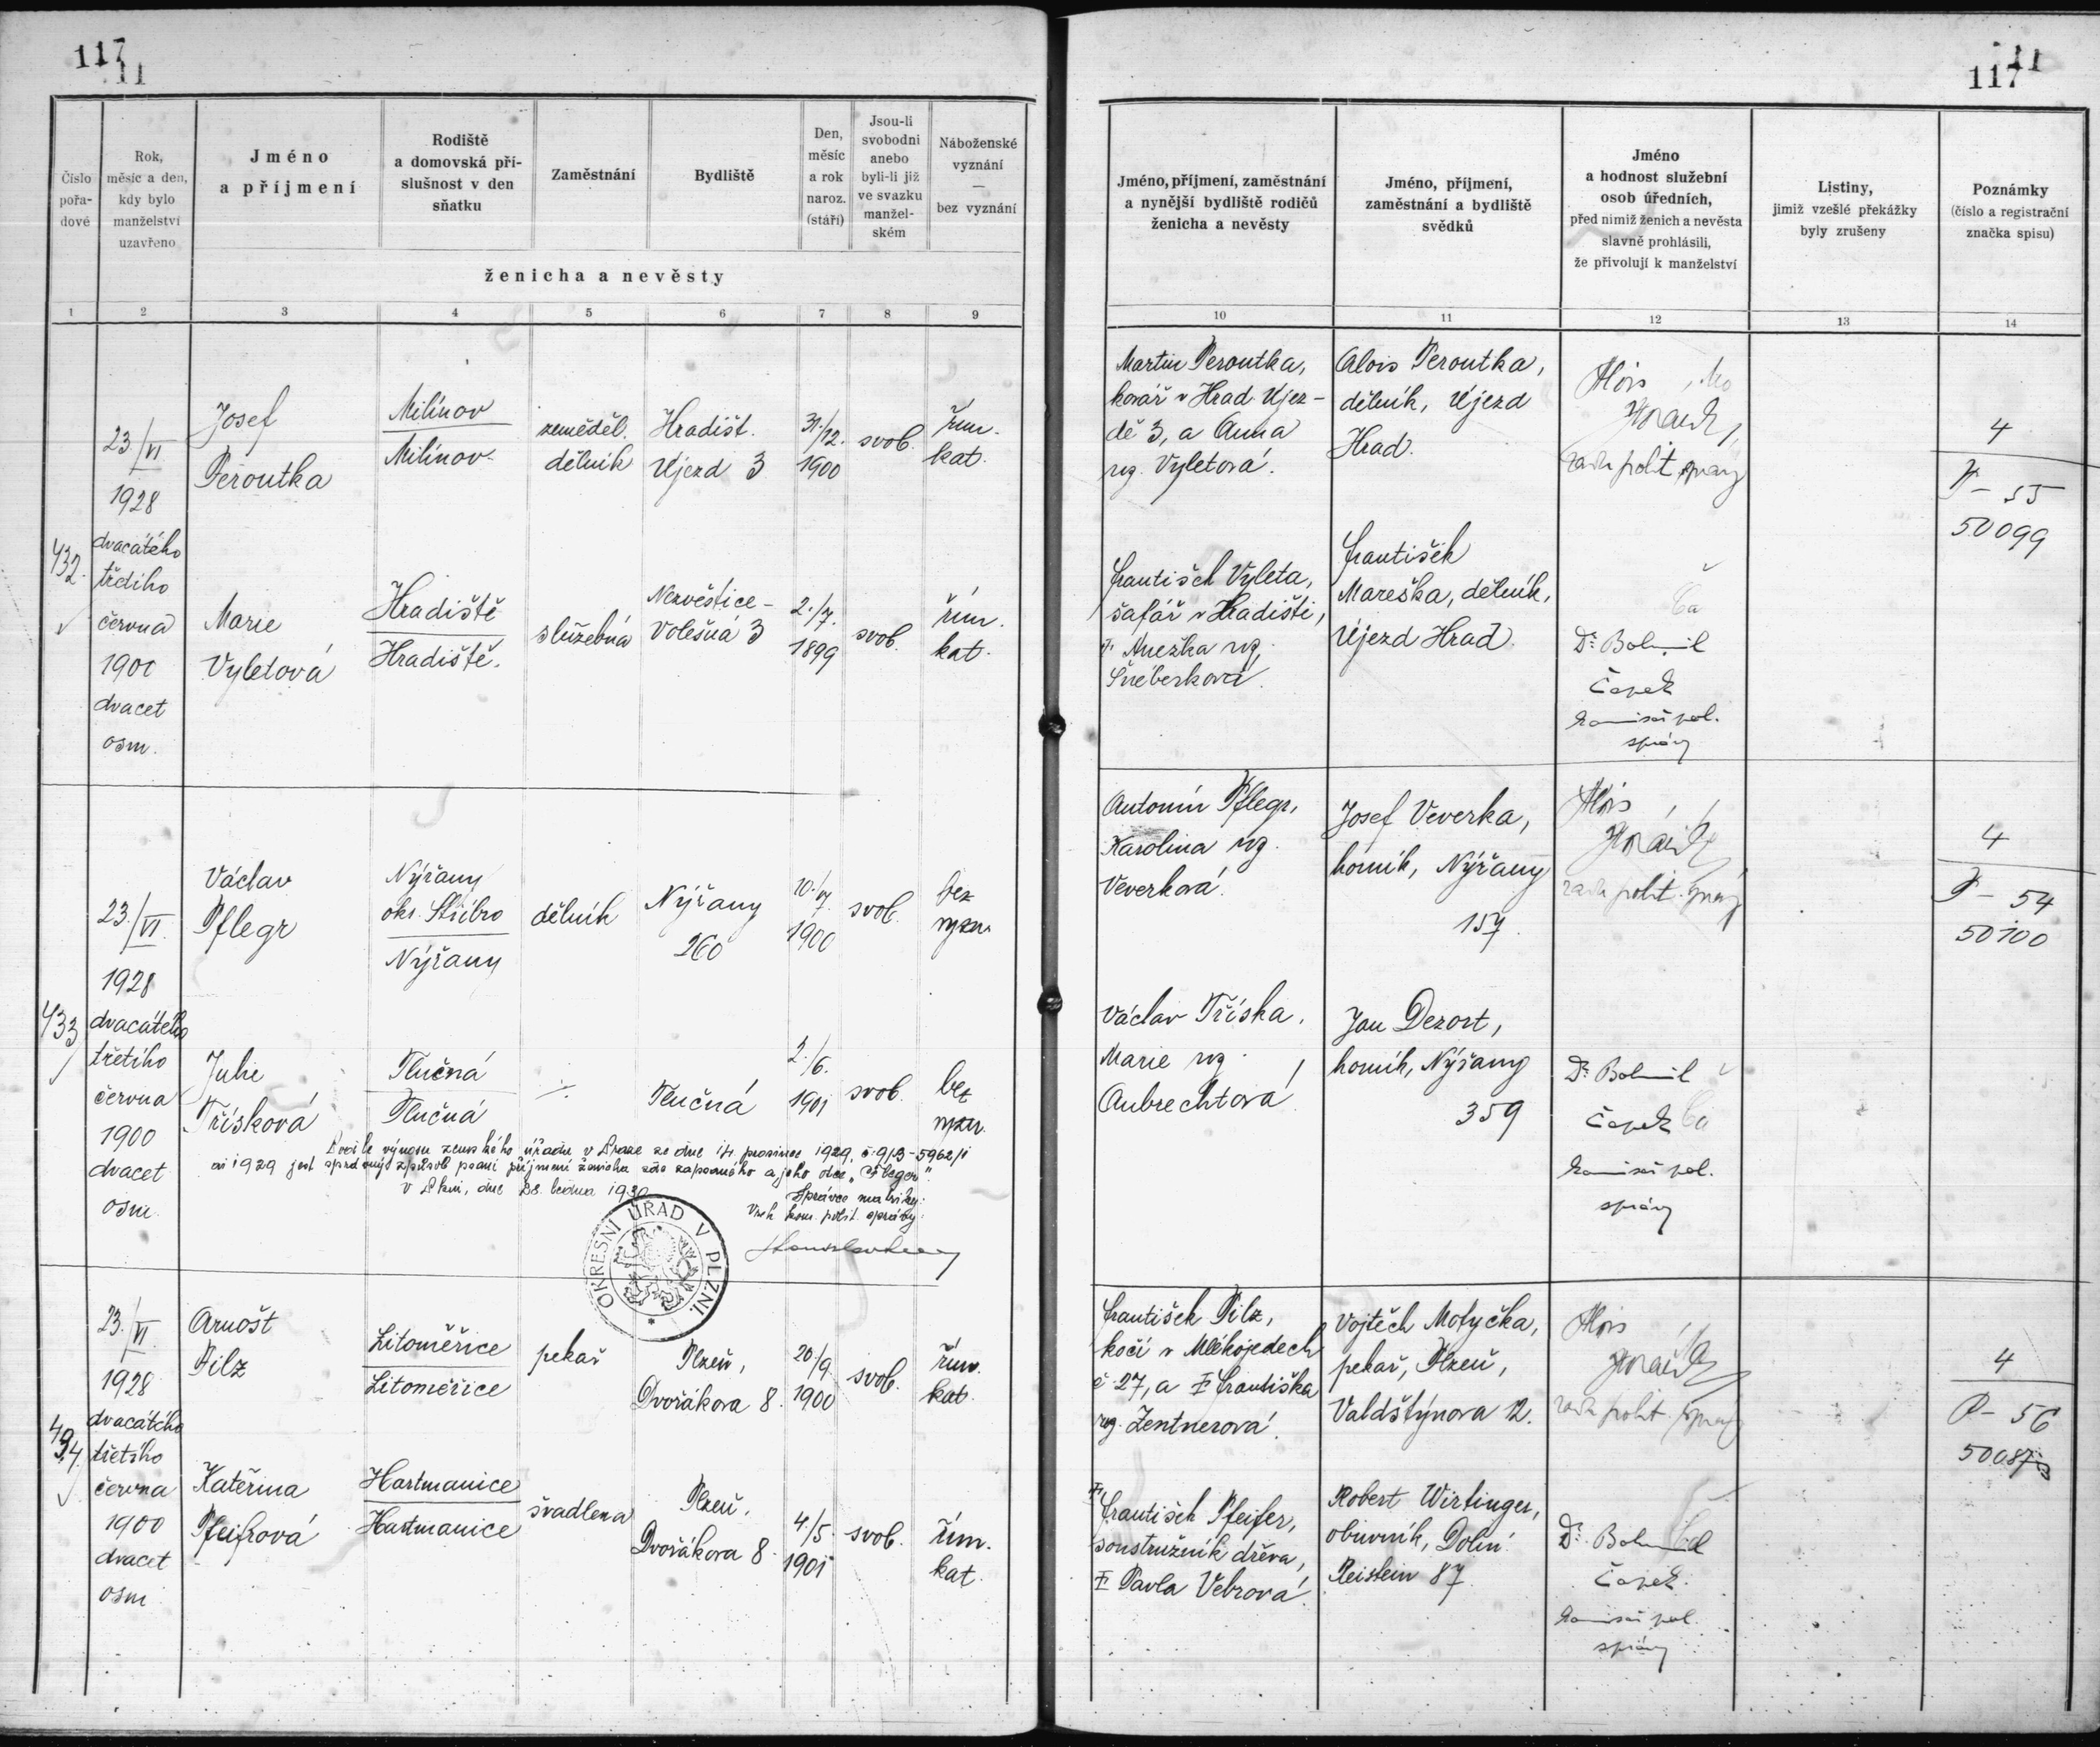 117
11
11
117
Číslo pořa-dové
Rok,
měsíc a den,
kdy bylo
manželství
uzavřeno
Jméno
a příjmení
Rodiště
a domovská pří-
slušnost v den
sňatku
Zaměstnání
Bydliště
Den,
měsíc
a rok
naroz.
(stáří)
Jsou-li
svobodni
anebo
byli-li již
ve svazku
manžel-
ském
Náboženské
vyznání
—
bez vyznání
ženicha a nevěsty
1 2 3 4 5 6 7 8 9
Jméno, příjmení, zaměstnání
a nynější bydliště rodičů
ženicha a nevěsty
Jméno, příjmení,
zaměstnání a bydliště
svědků
Jméno
a hodnost služební
osob úředních,
před nimiž ženich a nevěsta
slavně prohlásili,
že přivolují k manželství
Listiny,
jimiž vzešlé překážky
byly zrušeny
Poznámky
(číslo a registrační
značka spisu)
10 11 12 13 14
432.
23/VI
1928
dvacátého
třdiho
června
1900
dvacet
osm.
Josef
Peroutka
Milínov
Milínov
zeměděl.
dělník
Hradišt.
Ujezd 3
31/12.
1900
svob.
řím.
kat.
Marie
Vyletová
Hradiště
Hradiště.
služebná
Nezvěstice -
Volešná 3
2./7.
1899
svob.
řím.
kat.
Martin Peroutka,
kovář v Hrad. Ujez-
dě 3, a Anna
roz. Vyletová.
Alois Peroutka,
dělník, Újezd
Hrad.
Alois
rada polit. správy
4
P - 55
50099
František Vyleta,
šafář v Hradišti,
Anežka roz.
František
Mareška, dělník,
Újezd Hrad.
Dr. Bohumil
Čapek
komisař pol.
správy
433
23./VI.
1928
dvacátého
třetího
června
1900
dvacet
osm.
Václav
Pflegr
Nýřany
okr. Stříbro
Nýřany
dělník
Nýřany
260
10./7.
1900
svob.
bez
vyzn.
Julie
Třísková
Tlučná
Tlučná
Tlučná
2./6.
1901
svob.
bez
vyzn.
Dosle výnosu zemského úřadu v Praze ze dne 14. prosince 1929, č. 913-5962/1
ai 1929 jest správný způsob psaní příjmení ženicha zde zapsaného a jeho otce „Pfleger".
V Plzni, dne 28. ledna 1930
Správce matriky:
Vrch. kom. polit. správy:
OKRESNÍ ÚŘAD V PLZNI
Antonín Pflegr,
Karolina roz.
Veverková.
Josef Veverka,
horník, Nýřany
157.
Alois
rada polit. správy
4
P - 54
50100
Václav Tříska,
Marie roz.
Aubrechtová
Jan Dezort,
horník, Nýřany
359
Dr. Bohumil
Čapek
komisař pol.
správy
434
23./VI
1928
dvacátého
třetího
června
1900
dvacet
osm
Arnošt
Pilz
Litoměřice
Litoměřice
pekař
Plzeň,
Dvořákova 8.
20./9.
1900
svob.
řím.
kat.
Kateřina
Pfeifrová
Hartmanice
Hartmanice
švadlena
Plzeň,
Dvořákova 8.
4./5.
1901
svob.
řím.
kat.
František Pilz,
kočí v Mlékojedech
č. 27, a Františka
roz. Zentnerová.
Vojtěch Motyčka,
pekař, Plzeň,
Valdštýnova 12.
Alois
rada polit. správy
4
P - 56
František Pfeifer,
soustružník dřeva,
Pavla Vebrová.
Robert Wirtinger,
obuvník, Dolní
Reistein 87.
Dr. Bohumil
Čapek.
komisař pol.
správy